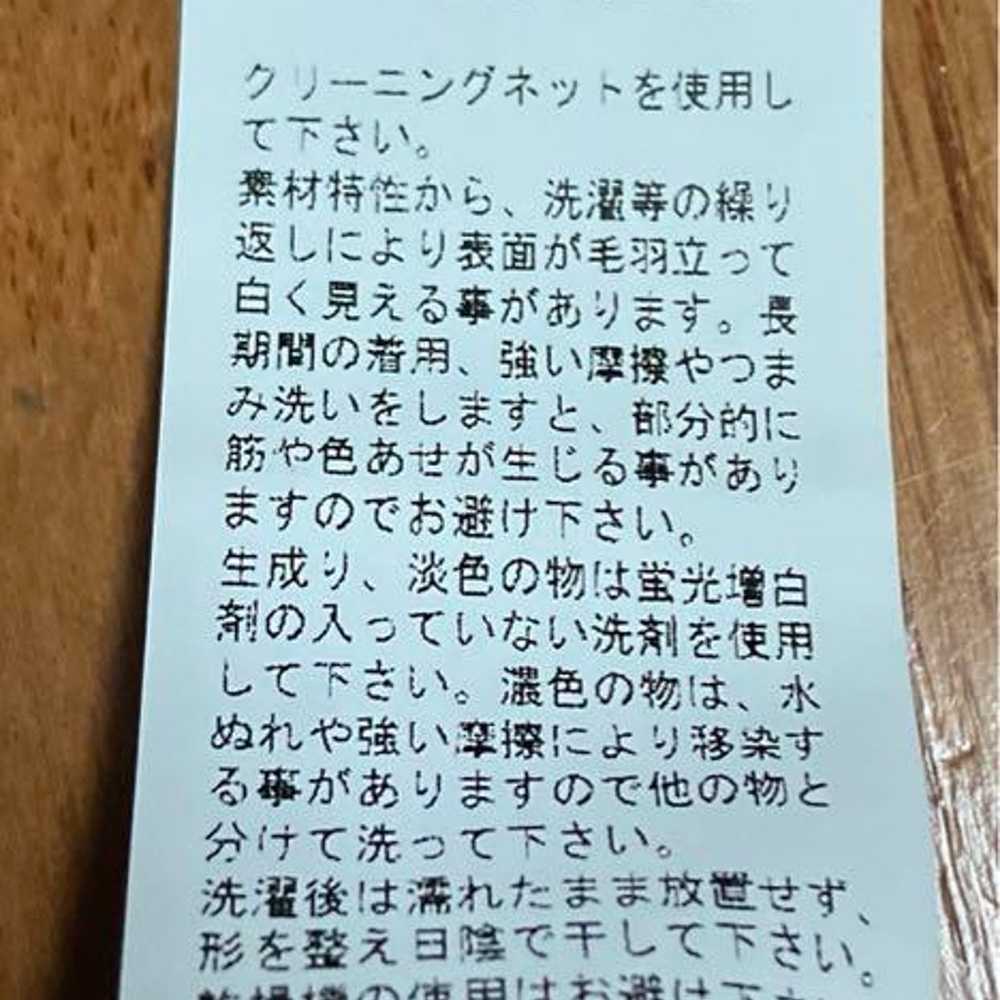 クリーニングネットを使用し
て下さい。
素材特性から、洗濯等の繰り
返しにより表面が毛羽立って
白く見える事があります。長
期間の着用、強い摩擦やつま
み洗いをしますと、部分的に
筋や色あせが生じる事があり
ますのでお避け下さい。
生成り、淡色の物は蛍光増白
剤の入っていない洗剤を使用
して下さい。濃色の物は、水
ぬれや強い摩擦により移染す
る事がありますので他の物と
分けて洗って下さい。
洗濯後は濡れたまま放置せず、
形を整え日陰で干して下さい。
乾燥機の使用はお避け下さ